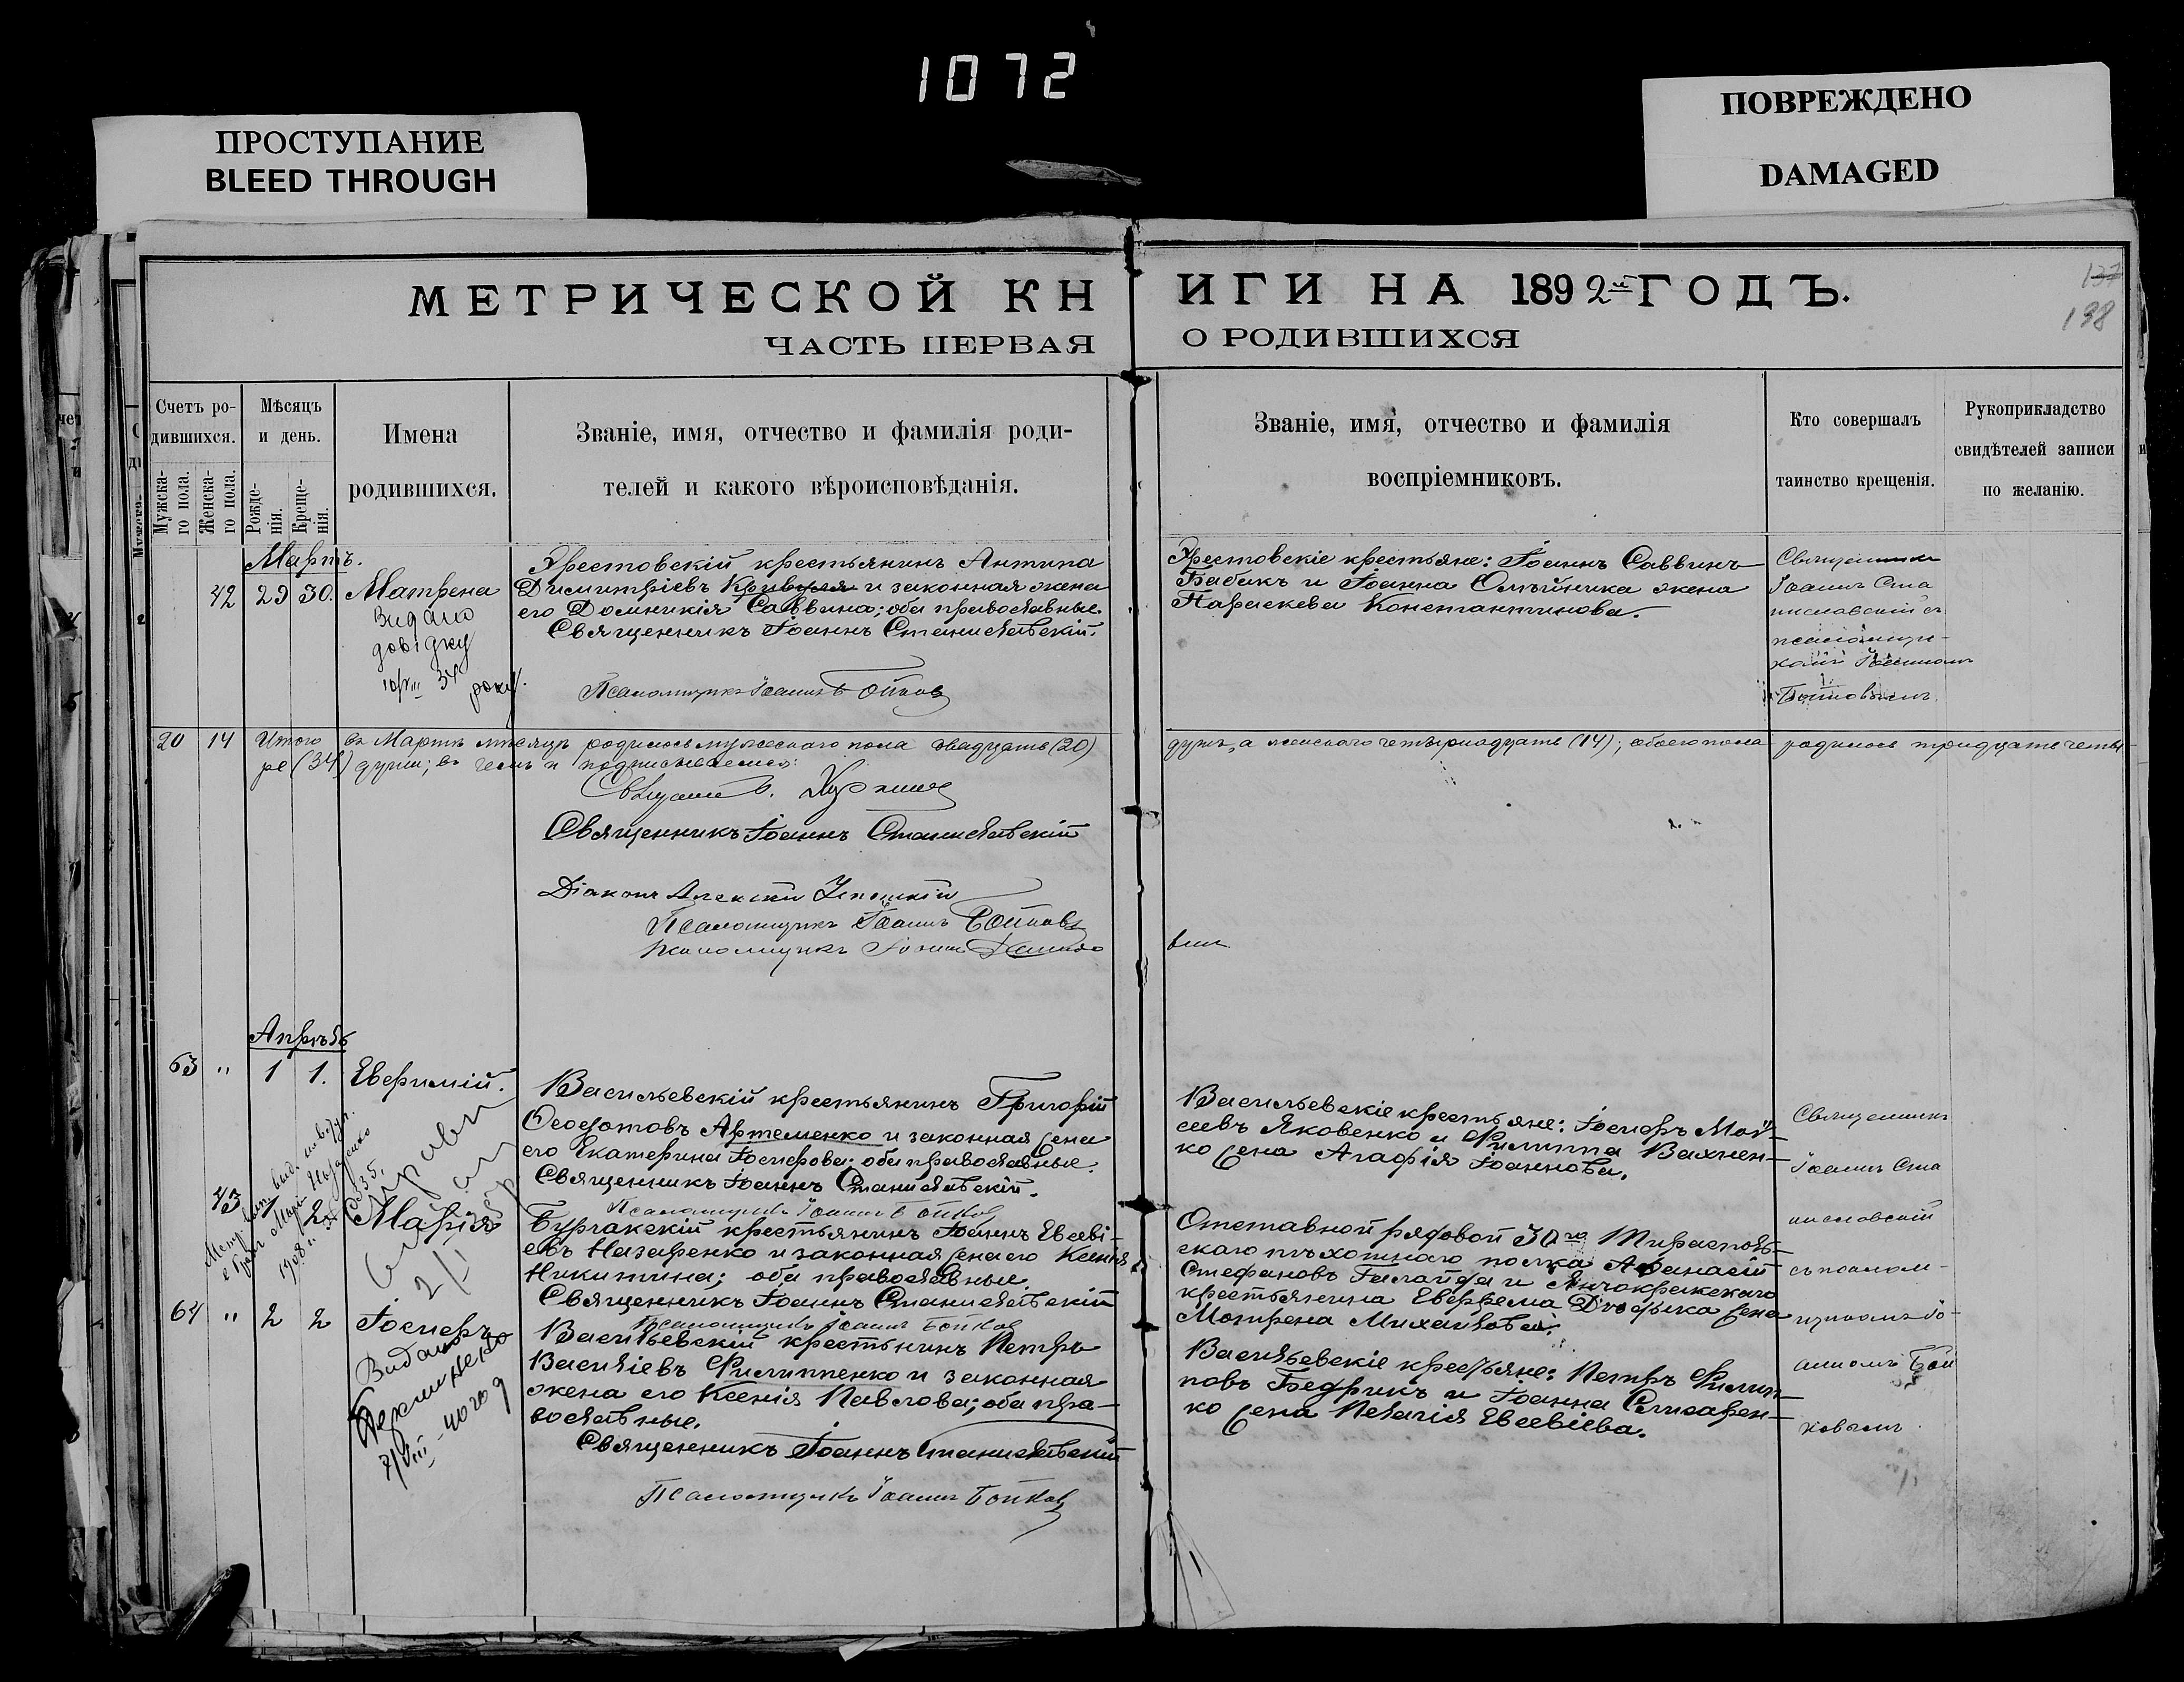 1072
ПРОСТУПАНИЕ
BLEED THROUGH
ПОВРЕЖДЕНО
DAMAGED
МЕТРИЧЕСКОЙ КНИГИ НА 1892й ГОДЪ.
137
138
ЧАСТЬ ПЕРВАЯ О РОДИВШИХСЯ
Счетъ ро-
дившихся.
Мужска-
го пола.
Женска-
го пола.
Мѣсяцъ
и день.
Рожде-
нія.
Креще-
нія.
Имена
родившихся.
Званіе, имя, отчество и фамилія роди-
телей и какого вѣроисповѣданія.
Званіе, имя, отчество и фамилія
воспріемниковъ.
Кто совершалъ
таинство крещенія.
Рукоприкладство
свидѣтелей записи
по желанію.
Мартъ.
42 29 30. Матрена
Видано
довідку
34 року.
Хрестовскій крестьянинъ Антипа
Димитріевъ Кривуля и законная жена
его Домникія Саввина; оба православные.
Священникъ Іоаннъ Станиславскій.
Псаломщикъ Іоаннъ Бойковъ
Хрестовскіе крестьяне: Іоаннъ Саввинъ
Бабакъ и Іоанна Олѣйника жена
Параскева Константинова.
Священникъ
Іоаннъ Ста
ниславскій съ
псаломщи-
комъ Іоанномъ
Бойковымъ.
20 14 Итого въ Мартѣ мѣсяцѣ родилось мужескаго пола двадцать (20) душъ, а женскаго четырнадцать (14); обоего пола родилось тридцать четы-
ре (34) души; въ чемъ и подписываемся:
Священникъ Іоаннъ Станиславскій
Діаконъ Алексій
Псаломщикъ Іоаннъ Бойковъ
Псаломщикъ Іоаннъ
Апрѣль
63 " 1 1. Евфимій.
Васильевскій крестьянинъ Григорій
Ѳеодотовъ Артеменко и законная жена
его Екатерина Іосифова; оба православные.
Священникъ Іоаннъ Станиславскій.
Псаломщикъ Іоаннъ Бойковъ
Васильевскіе крестьяне: Іосифъ Мой-
сеевъ Яковенко и Филиппа Вахнен-
ко жена Агафія Іоаннова.
Священникъ
Іоаннъ Ста
ниславскій
съ псалом-
щикомъ Іо-
анномъ Бой
ковымъ
43 1 2 Марія
Бургакскій крестьянинъ Іоаннъ Евсеві-
евъ Назаренко и законная жена его Ксенія
Никитина; оба православные.
Священникъ Іоаннъ Станиславскій
Псаломщикъ Іоаннъ Бойковъ
Отставной рядовой 30го Тирасполь-
скаго пѣхотнаго полка Аѳанасій
Стефановъ Галайда и Янчокракскаго
крестьянина жена
Матрена Михайлова.
64 " 2 2 Іосифъ
Видано
Васильевскій крестьянинъ Петръ
Василіевъ Филиппенко и законная
жена его Ксенія Павлова; оба пра-
вославные.
Священникъ Іоаннъ Станиславскій
Псаломщикъ Іоаннъ Бойковъ
Васильевскіе крестьяне: Петръ Филип-
повъ Бедрикъ и Іоанна Слисарен-
ко жена Пелагія Евсевіева.